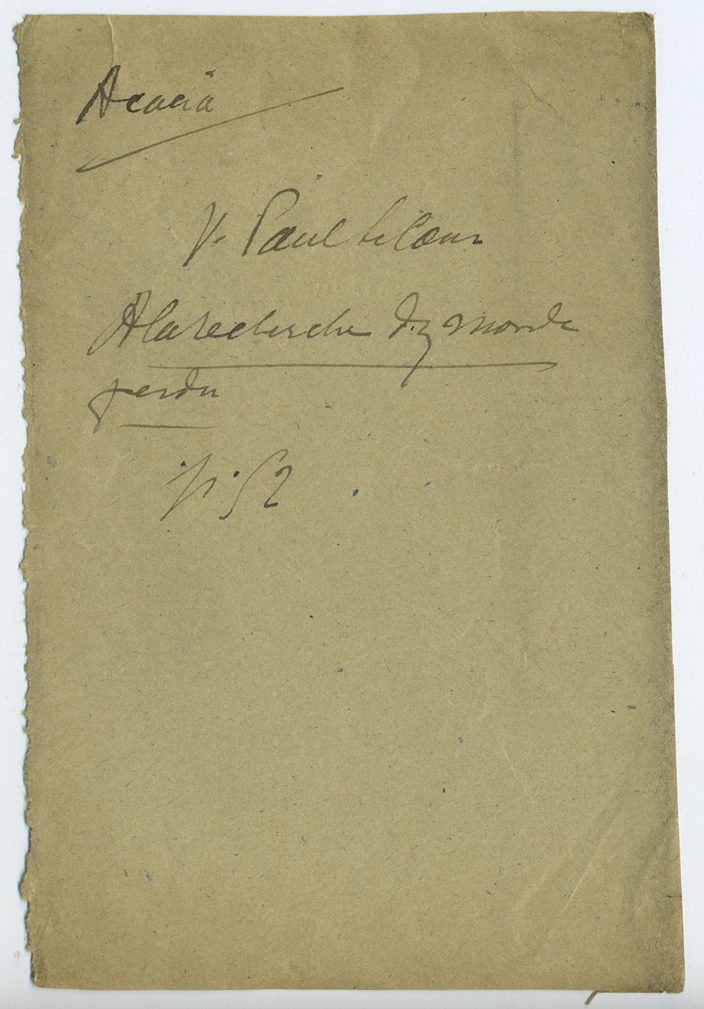 Acacia
V. Paul le Cour
A la recherche d'un monde
perdu
p. 52